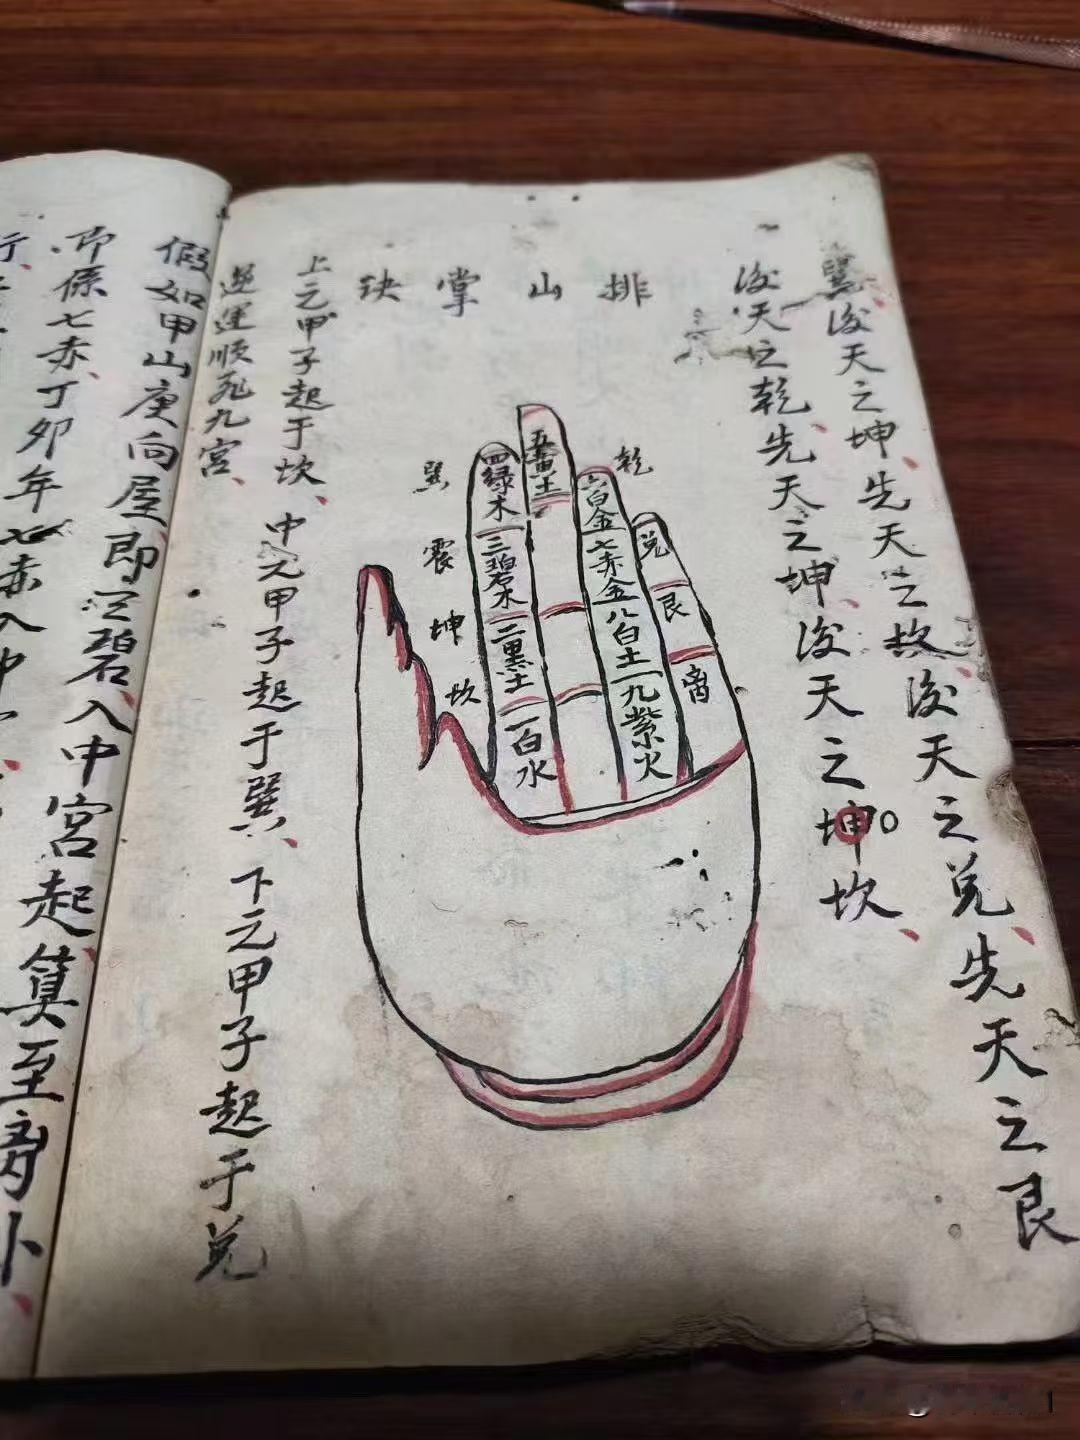 巽、后天之坤、先天之坎、后天之兑、先天之艮
后天之乾、先天之坤、后天之坤坎、
排山掌诀
上元甲子起于坎、中元甲子起于巽、下元甲子起于兑
逆运顺飞九宫、
乾
巽
震
坤
坎
四绿木
三碧木
二黑土
一白水
五黄土
六白金
七赤金
八白土
九紫火
兑
艮
离
假如甲山庚向屋、即三碧入中宫起算至离
即係七赤、丁卯年七赤入中